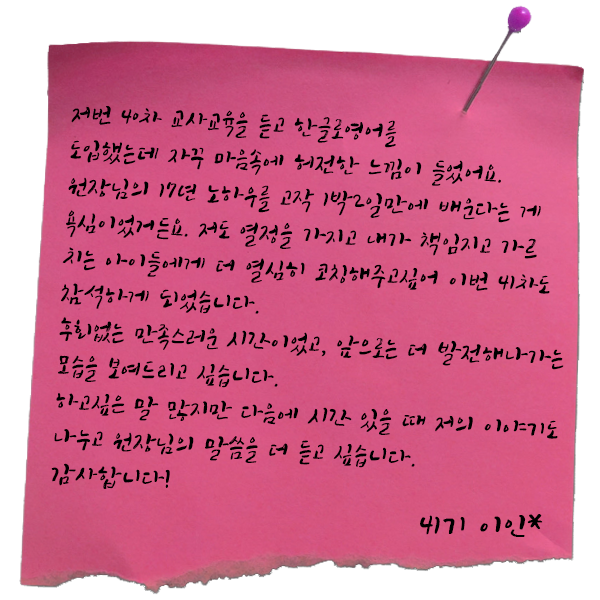 저번 40차 교사교육을 듣고 한글로영어를
도입했는데 자꾸 마음속에 허전한 느낌이 들었어요.
원장님의 17년 노하우를 고작 1박2일만에 배운다는 게
욕심이었거든요. 저도 열정을 가지고 내가 책임지고 가르
치는 아이들에게 더 열심히 코칭해주고싶어 이번 41차도
참석하게 되었습니다.
후회없는 만족스러운 시간이었고, 앞으로는 더 발전해나가는
모습을 보여드리고 싶습니다.
하고싶은 말 많지만 다음에 시간 있을 때 저의 이야기도
나누고 원장님의 말씀을 더 듣고 싶습니다.
감사합니다!
41기 이인*